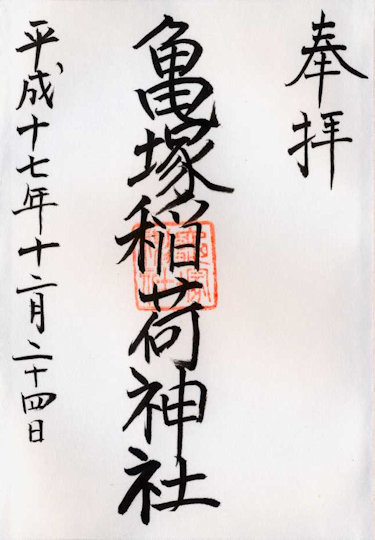 奉拝
亀塚稲荷神社
平成十七年十二月二十四日